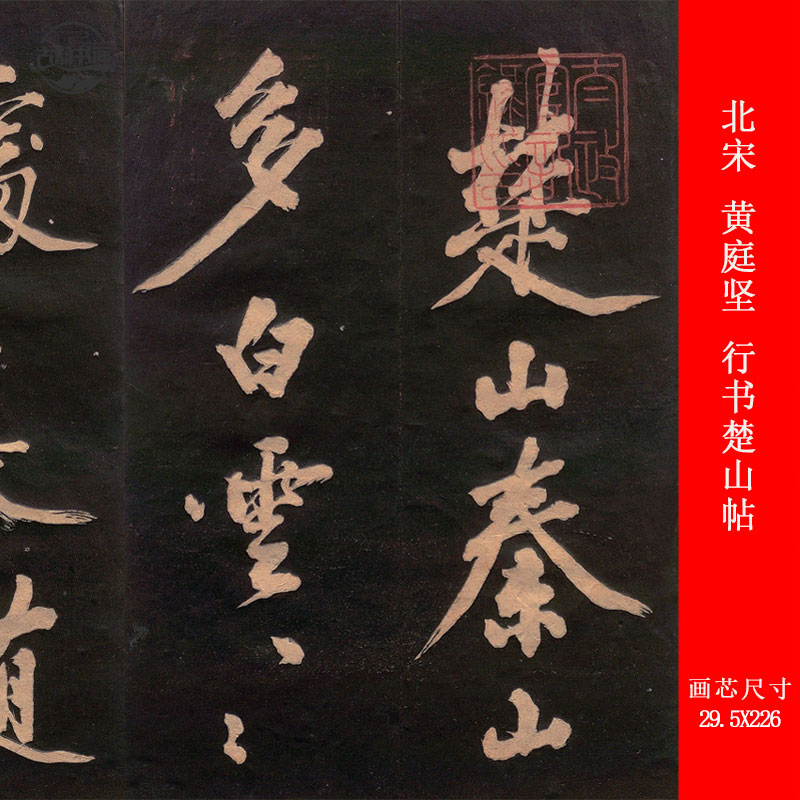 北宋 黄庭坚 行书楚山帖
画芯尺寸
29.5X226
楚山秦山
多白雲